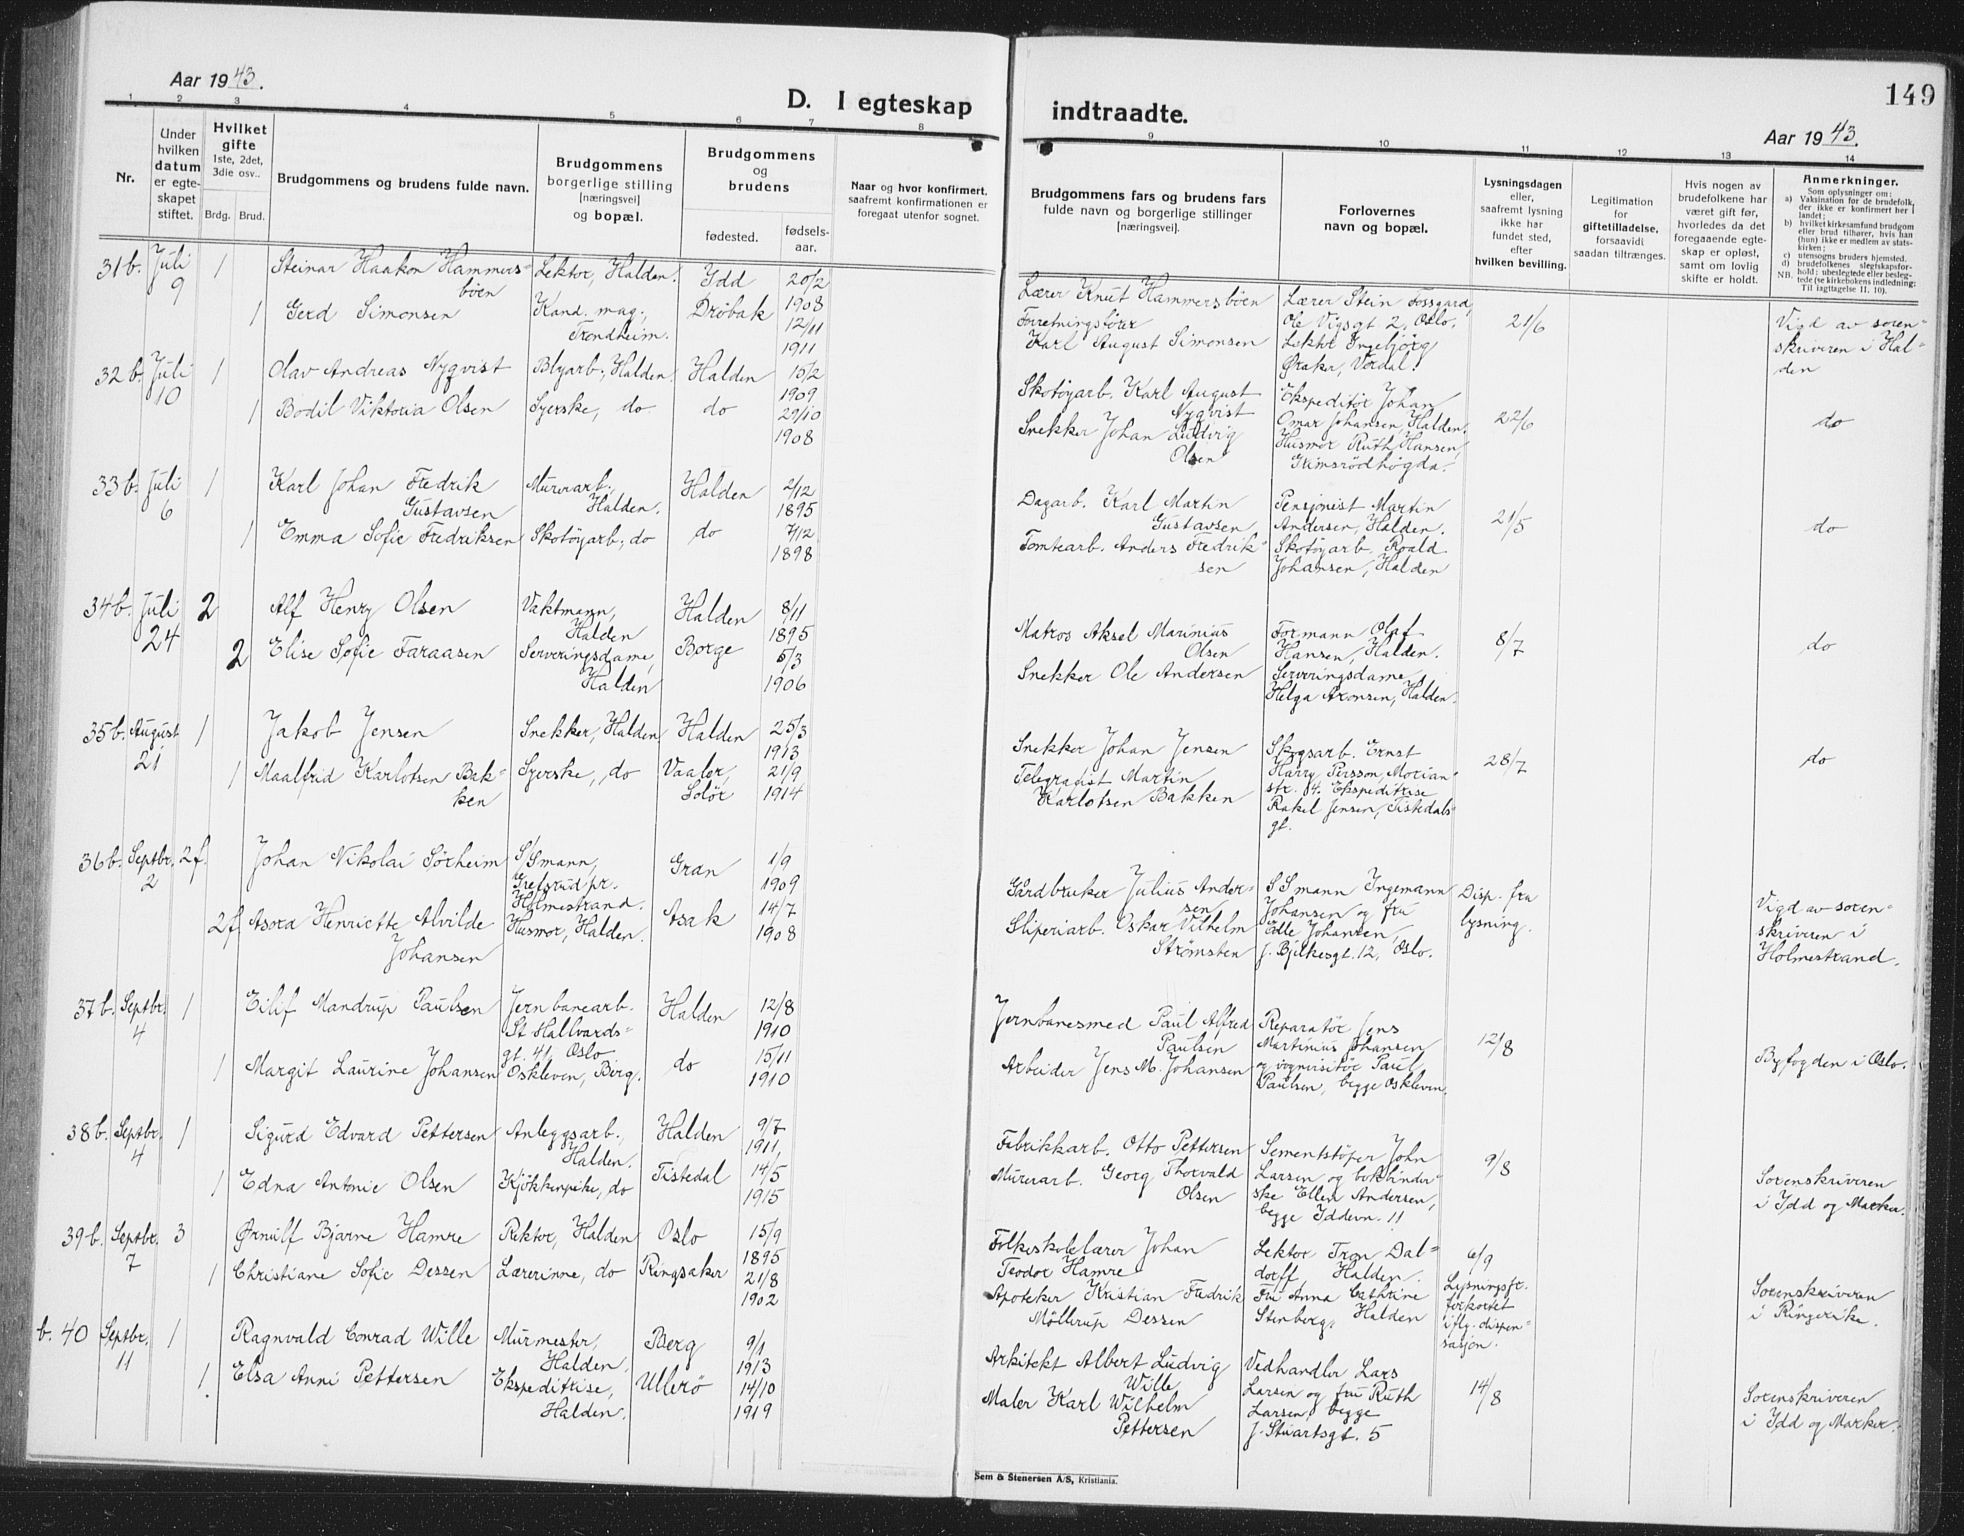 Aar 1943.
D. I egteskap indtraadte.
149
Aar 1943.
1 2 3 4 5 6 7 8 9 10 11 12 13 14
Nr.
Under hvilken datum er egteskapet stiftet.
Hvilket gifte 1ste, 2det, 3die osv..
Brdg. Brud.
Brudgommens og brudens fulde navn.
Brudgommens borgerlige stilling [næringsvei] og bopæl.
Brudgommens og brudens
fødested. fødsels-aar.
Naar og hvor konfirmert, saafremt konfirmationen er foregaat utenfor sognet.
Brudgommens fars og brudens fars fulde navn og borgerlige stillinger [næringsvei].
Forlovernes navn og bopæl.
Lysningsdagen eller, saafremt lysning ikke har fundet sted, efter hvilken bevilling.
Legitimation for giftetilladelse, forsaavidt saadan tiltrænges.
Hvis nogen av brudefolkene har været gift før, hvorledes da det foregaaende egteskap er opløst, samt om lovlig skifte er holdt.
Anmerkninger.
Som oplysninger om:
a) Vaksination for de brudefolk, der ikke er konfirmert her i landet;
b) hvilket kirkesamfund brudgom eller brud tilhører, hvis han (hun) ikke er medlem av statskirken;
c) utensogns bruders hjemsted.
d) brudefolkenes slegtskapsforhold: ubeslegtede eller beslegtede (se kirkebokens indledning;
NB. Til iagttagelse II, 10).
31b. Juli 9 1 Steinar Haakon Hammersböen Lektor, Halden. Idd 20/2 1908
1 Gerd Simonsen Kand. mag., Trondheim. Dröbak 12/11 1911
Lærer Knut Hammersböen
Forretningsförer Karl August Simonsen
Lærer Stein Fossgard, Ole Vigsgt 2, Oslo.
Lektor Ingebjörg Øraker, Verdal.
21/6
Vigd av sorenskriveren i Halden
32b. Juli 10 1 Olav Andreas Nyqvist Blyarb., Halden. Halden 10/2 1909
1 Bodil Viktoria Olsen Syerske, do do 29/10 1908
Skotöyarb. Karl August Nyqvist
Snekker Johan Ludvig Olsen
Ekspeditör Johan Omar Johansen, Halden.
Husmor Ruth Hansen, Grimsrödhögda.
22/6
do
33b. Juli 6 1 Karl Johan Fredrik Gustavsen Murerarb. Halden. Halden 2/12 1895
1 Emma Sofie Fredriksen Skotöyarb., do do 7/12 1898
Dagarb. Karl Martin Gustavsen
Tomtearb. Anders Fredriksen
Pensjonist Martin Andersen, Halden.
Skotöyarb. Roald Johansen, Halden
21/5
do
34b. Juli 24 2 Alf Henry Olsen Vaktmann, Halden Halden 8/11 1895
2 Elise Sofie Faraasen Serveringsdame, Halden Borge 5/3 1906
Matros Aksel Marinius Olsen
Snekker Ole Andersen
Formann Olaf Hansen, Halden.
Serveringsdame Helga Aronsen, Halden.
8/7
do
35b. August 21 1 Jakob Jensen Snekker, Halden Halden 25/3 1913
1 Maalfrid Karlotsen Bakken Syerske, do Vaaler, Solör 21/9 1914
Snekker Johan Jensen
Telegrafist Martin Karlotsen Bakken
Skogsarb. Ernst Harry Persson, Morianstr. 4. Ekspeditrise Rakel Jensen, Tistedalsgt.
28/7
do
36b. Septbr. 2 2f. Johan Nikolai Sörheim S/Smann, Grefsrud pr. Holmestrand. Gran 1/9 1909
2f Asora Henriette Alvilde Johansen Husmor, Halden. Asak 14/7 1908
Gårdbruker Julius Andersen
Sliperiarb. Oskar Vilhelm Strømsten
SSmann Ingemann Johansen og fru Edle Johansen, J. Bjelkesgt. 12, Oslo.
Disp. fra lysning.
Vigd av sorenskriveren i Holmestrand.
37b. Septbr. 4 1 Eilif Mandrup Paulsen Jernbanearb. St Hallvardsgt. 41, Oslo Halden 12/8 1910
1 Margit Laurine Johansen Oskleven, Berg. do 15/11 1910
Jernbanesmed Paul Alfred Paulsen
Arbeider Jens M. Johansen
Reparatör Jens Martinius Johansen og vognvisitör Paul Paulsen, begge Oskleven.
12/8
Byfogden i Oslo.
38b. Septbr. 4 1 Sigurd Edvard Pettersen Anleggsarb., Halden. Halden 9/7 1911,
1 Edna Antonie Olsen Kjökkenpike, do Tistedal 14/5 1915
Fabrikkarb. Otto Pettersen
Murerarb. Georg Thorvald Olsen
Sementstöper John Larsen og bokbinderske Ellen Andersen, begge Iddevn. 11
9/8
Sorenskriveren i Idd og Marker.
39b. Septbr. 7 3 Ørnulf Bjarne Hamre Rektor, Halden Oslo 15/9 1895
1 Christiane Sofie Dessen Lærerinne, do Ringsaker 21/8 1902
Folkeskolelærer Johan Teodor Hamre
Apoteker Kristian Fredrik Möllerup Dessen
Lektor Tron Daldorff, Halden.
Fru Anna Cathrine Stenberg, Halden
6/9
Lysningsfr. forkortet iflg. dispensasjon.
Sorenskriveren i Ringerike.
b. 40 Septbr. 11 1 Ragnvald Conrad Wille Murmester, Halden. Berg 9/1 1913
1. Elsa Anni Pettersen Ekspeditrise, Halden. Ullerö 14/10 1919
Arkitekt Albert Ludvig Wille
Maler Karl Wilhelm Pettersen
Vedhandler Lars Larsen og fru Ruth Larsen, begge J. Stuartsgt. 5
14/8
Sorenskriveren i Idd og Marker.
Sem & Stenersen A/S, Kristiania.